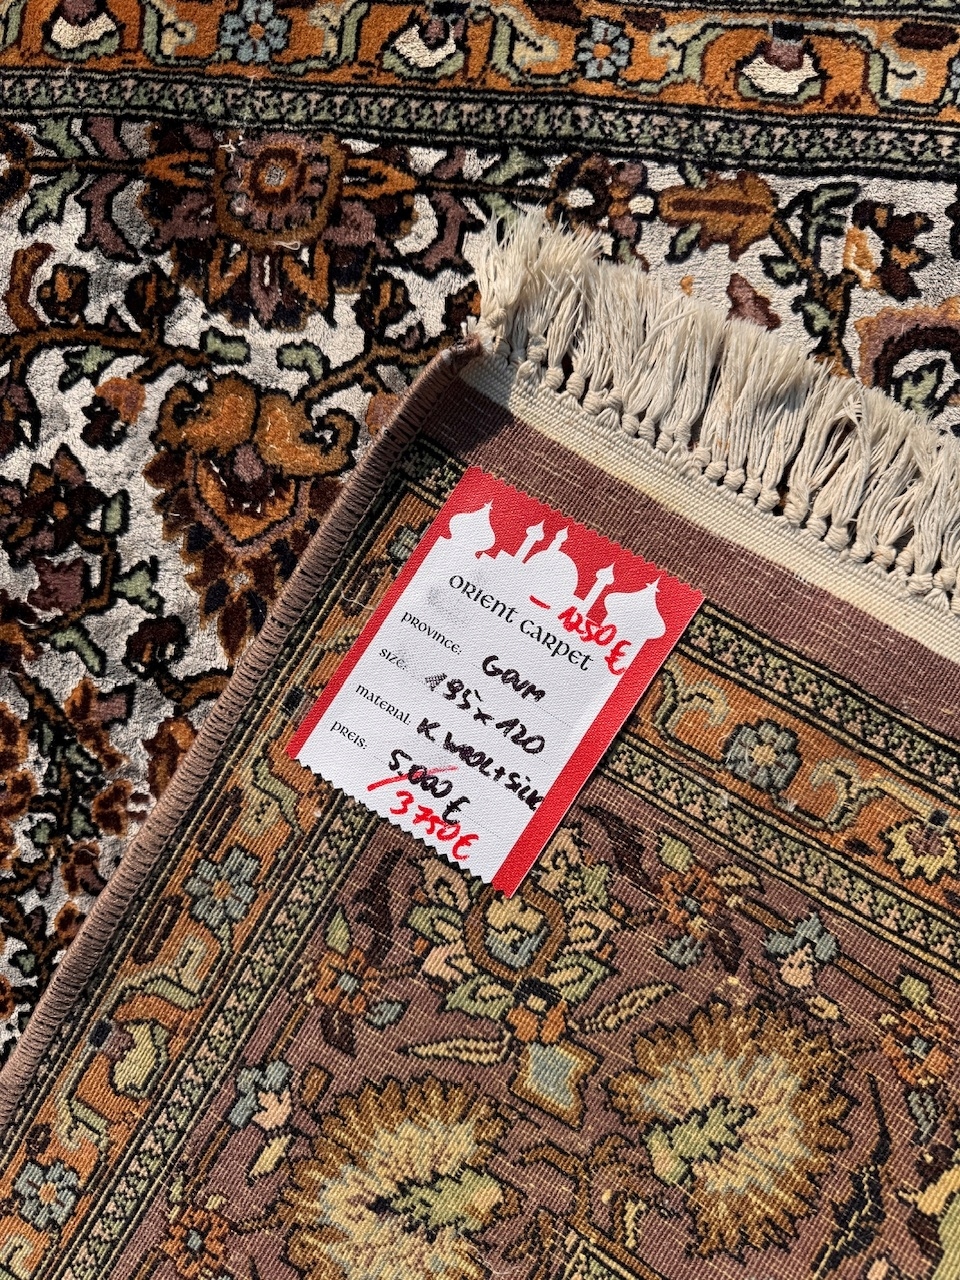 ORIENT CARPET
- 1250 €
PROVINCE: GOUM
SIZE: 195 x 120
MATERIAL: K. WOOL + SILK
PREIS: 5.000 €
3750 €